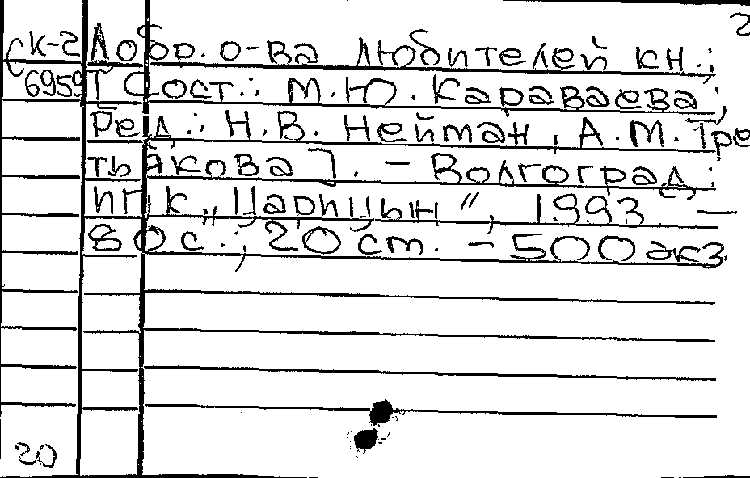 2
СК-2 Добр. о-ва любителей кн.;
6959 [Сост.: М.Ю. Караваева;
Ред.: Н.В. Нейман, А.М. Тре
тьякова]. - Волгоград:
ИПК „Царицын", 1993 -
80 с.; 20 см. - 500 экз
20